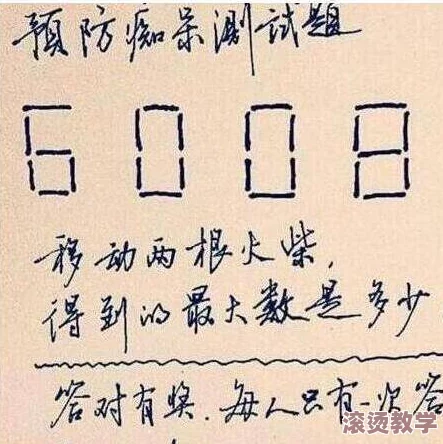 预防痴呆测试题
6008
移动两根火柴，
得到的最大数是多少
答对有奖．每人只有一次答
滚烫教学